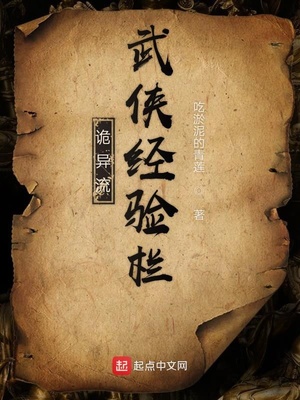 武侠经验栏
诡异流
吃淤泥的青莲 著
起 起点中文网